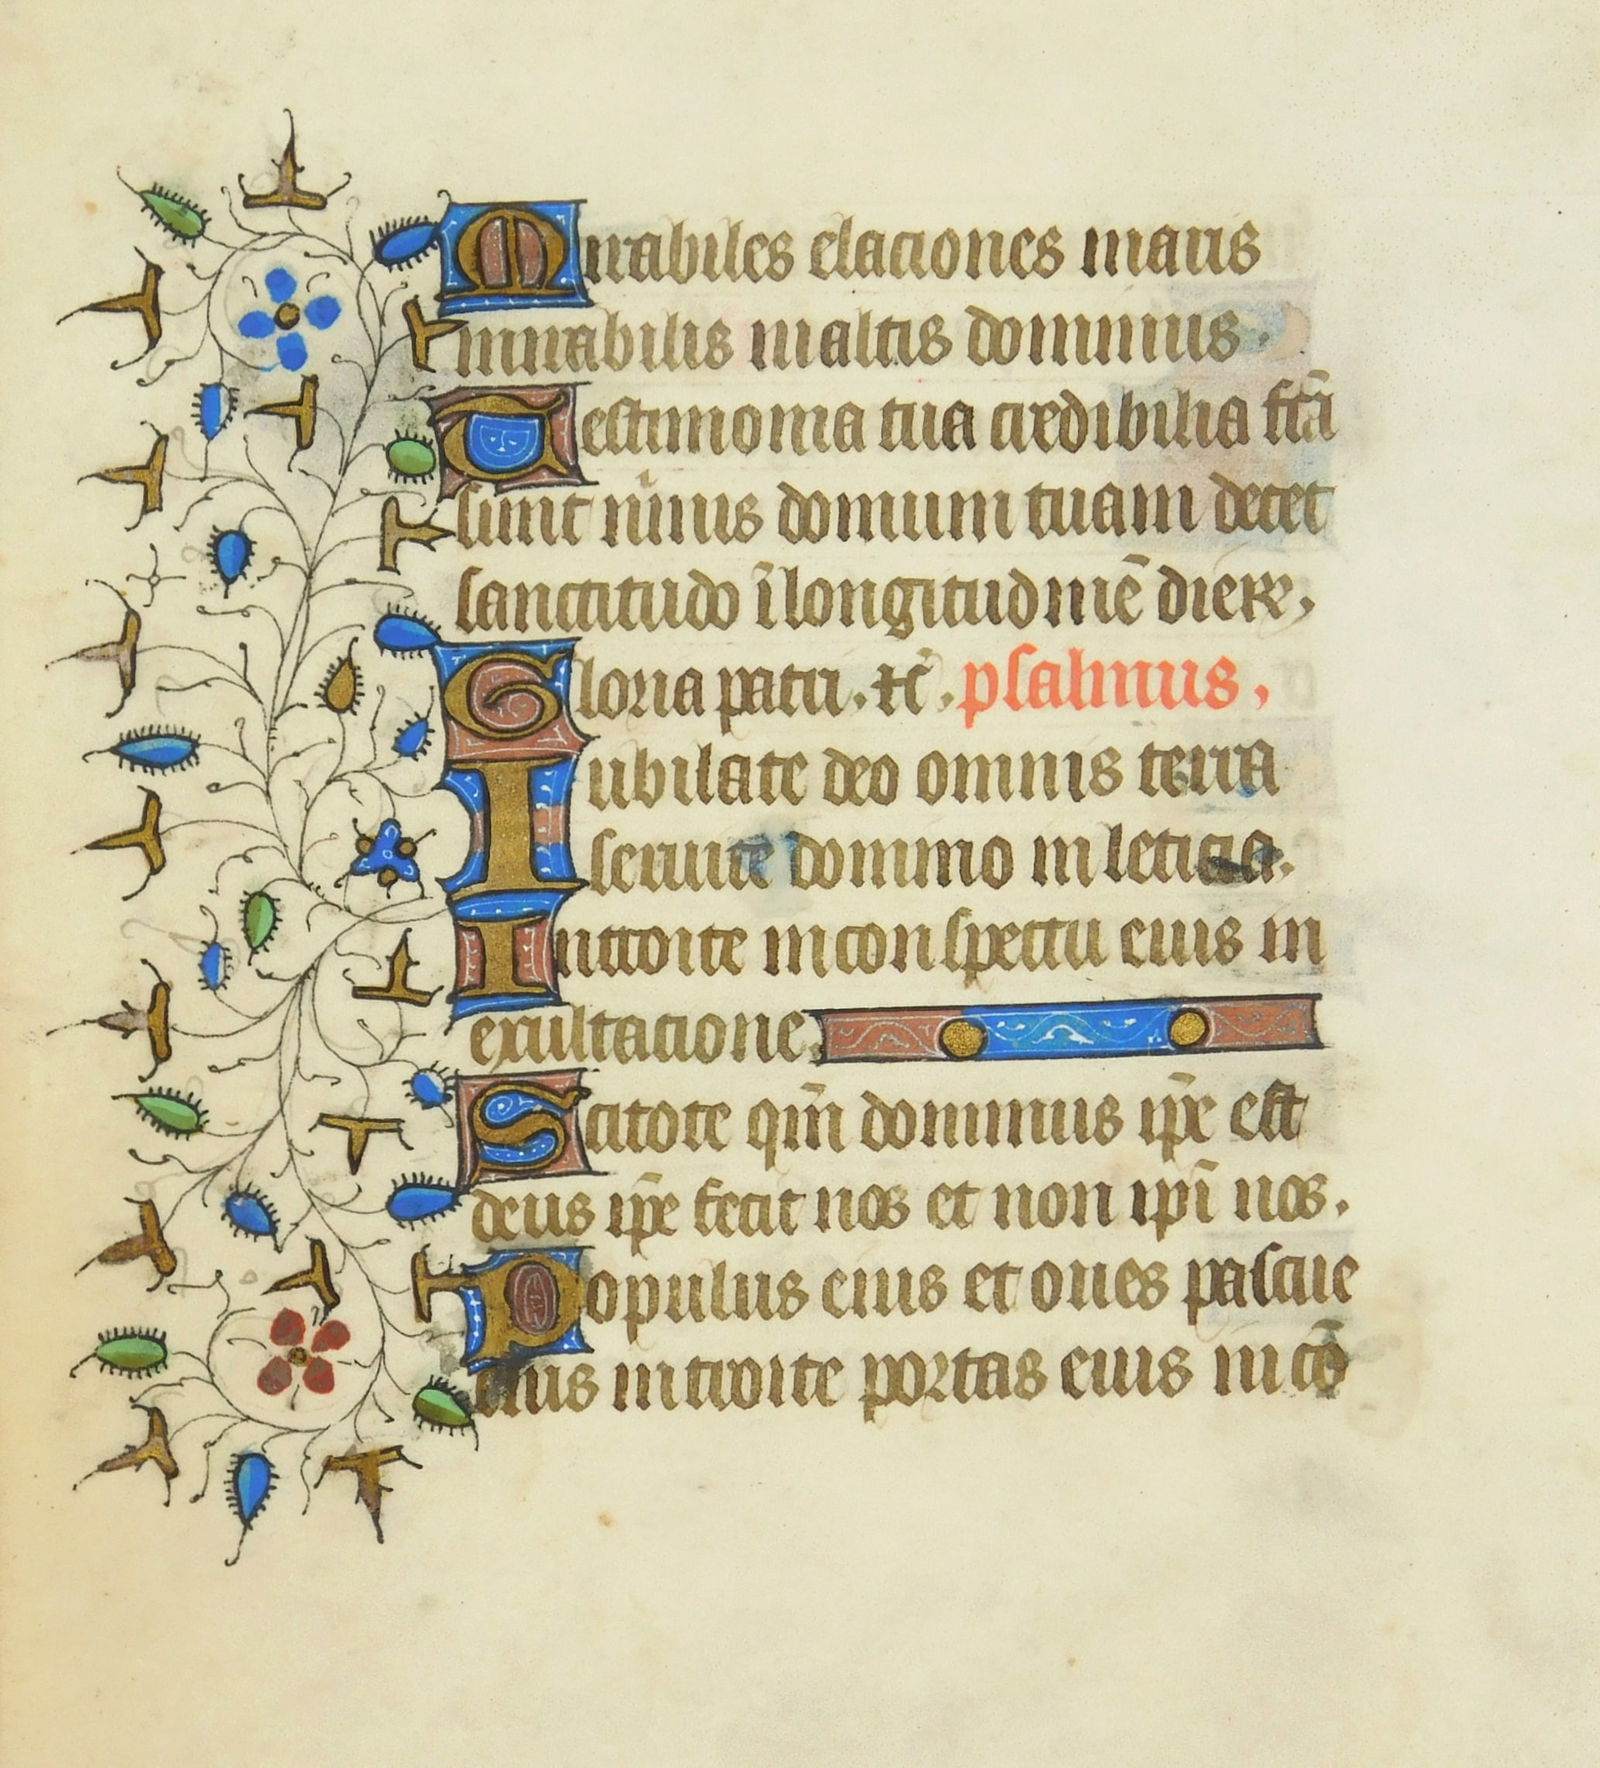 Mirabiles elaciones maris
mirabilis in altis dominus.
Testimonia tua credibilia fc̄a
sunt nimis domum tuam decet
sanctitudo ī longitudinē dieꝝ,
Gloria patri. ⁊c̄. psalmus,
Iubilate deo omnis terra
seruite domino in leticia.
Introite in conspectu eius in
exultacione.
Scitote qm̄ dominus ip̄e est
deus ip̄e fecit nos et non ipī nos.
Populus eius et oues pascue
eius introite portas eius in cō